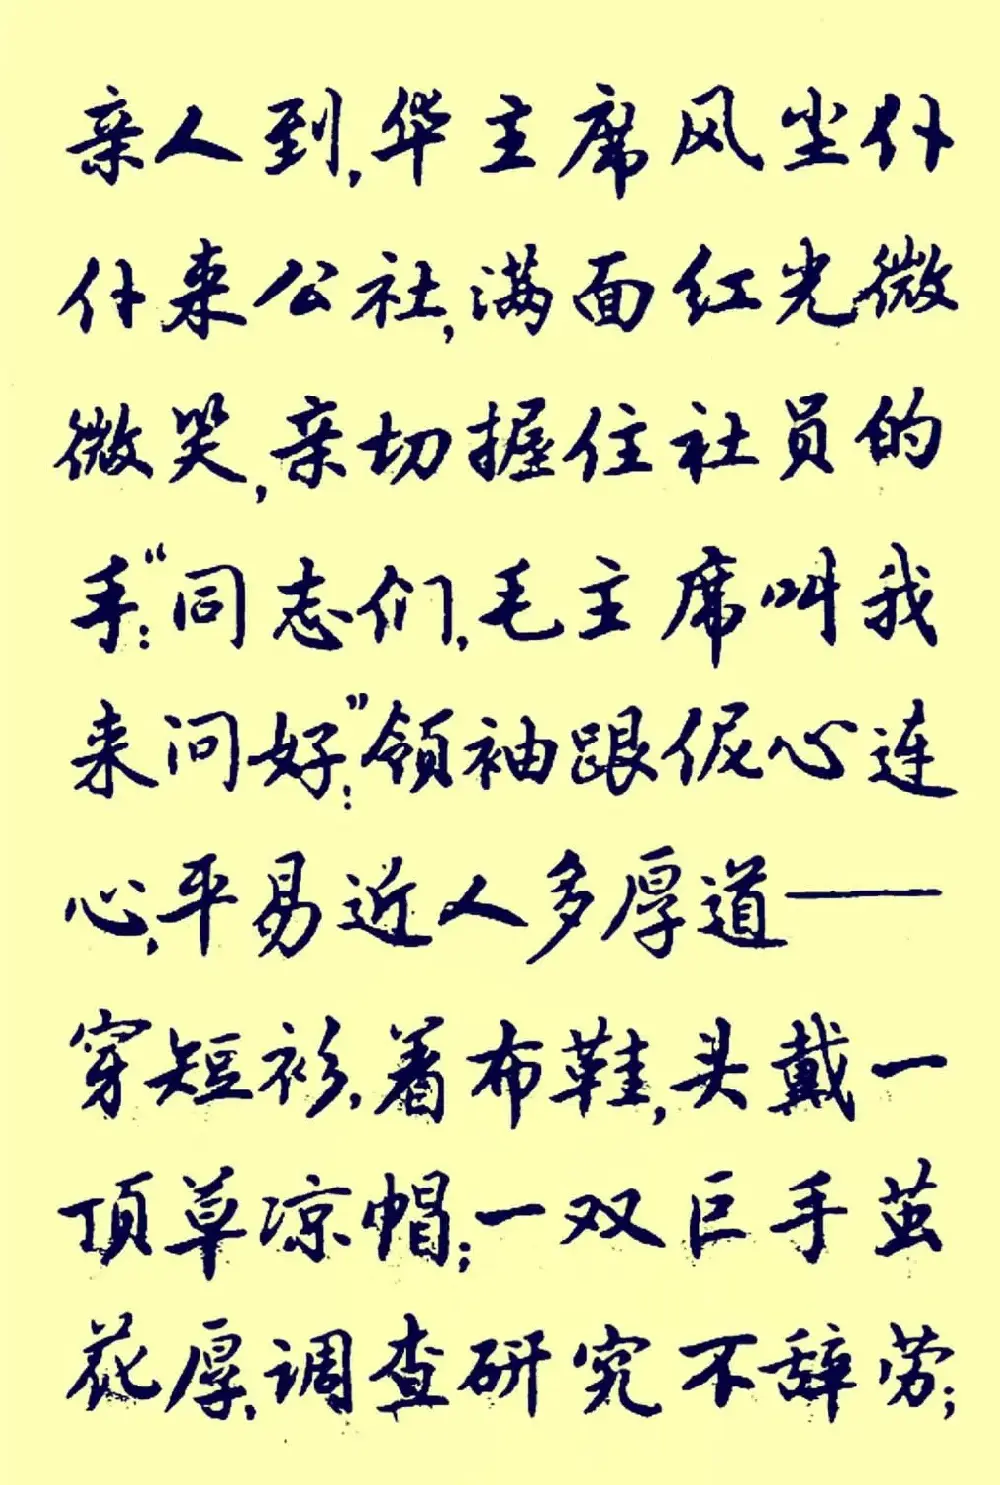 亲人到，华主席风尘仆
仆来公社，满面红光微
微笑，亲切握住社员的
手：“同志们，毛主席叫我
来问好：”领袖跟伲心连
心，平易近人多厚道——
穿短衫，着布鞋，头戴一
顶草凉帽；一双巨手茧
花厚，调查研究不辞劳；